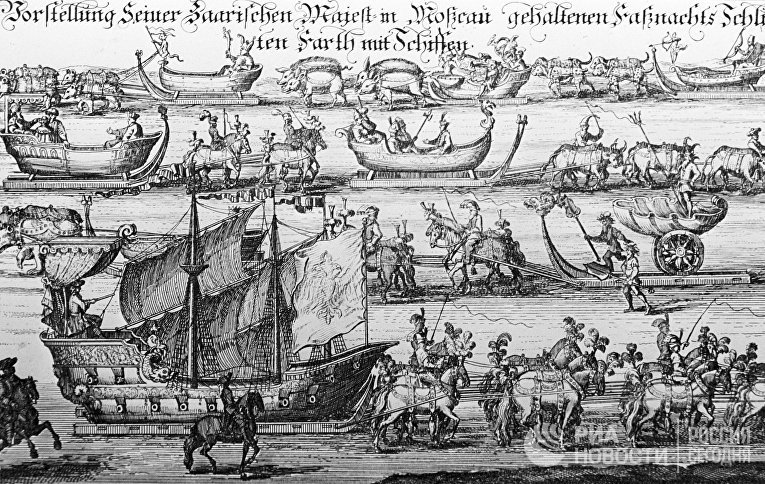 Vorstellung Seiner Zaarischen Majest in Moßcau gehaltenen Faßnachts Schli
ten Farth mit Schiffen.
РИА НОВОСТИ
РОССИЯ СЕГОДНЯ